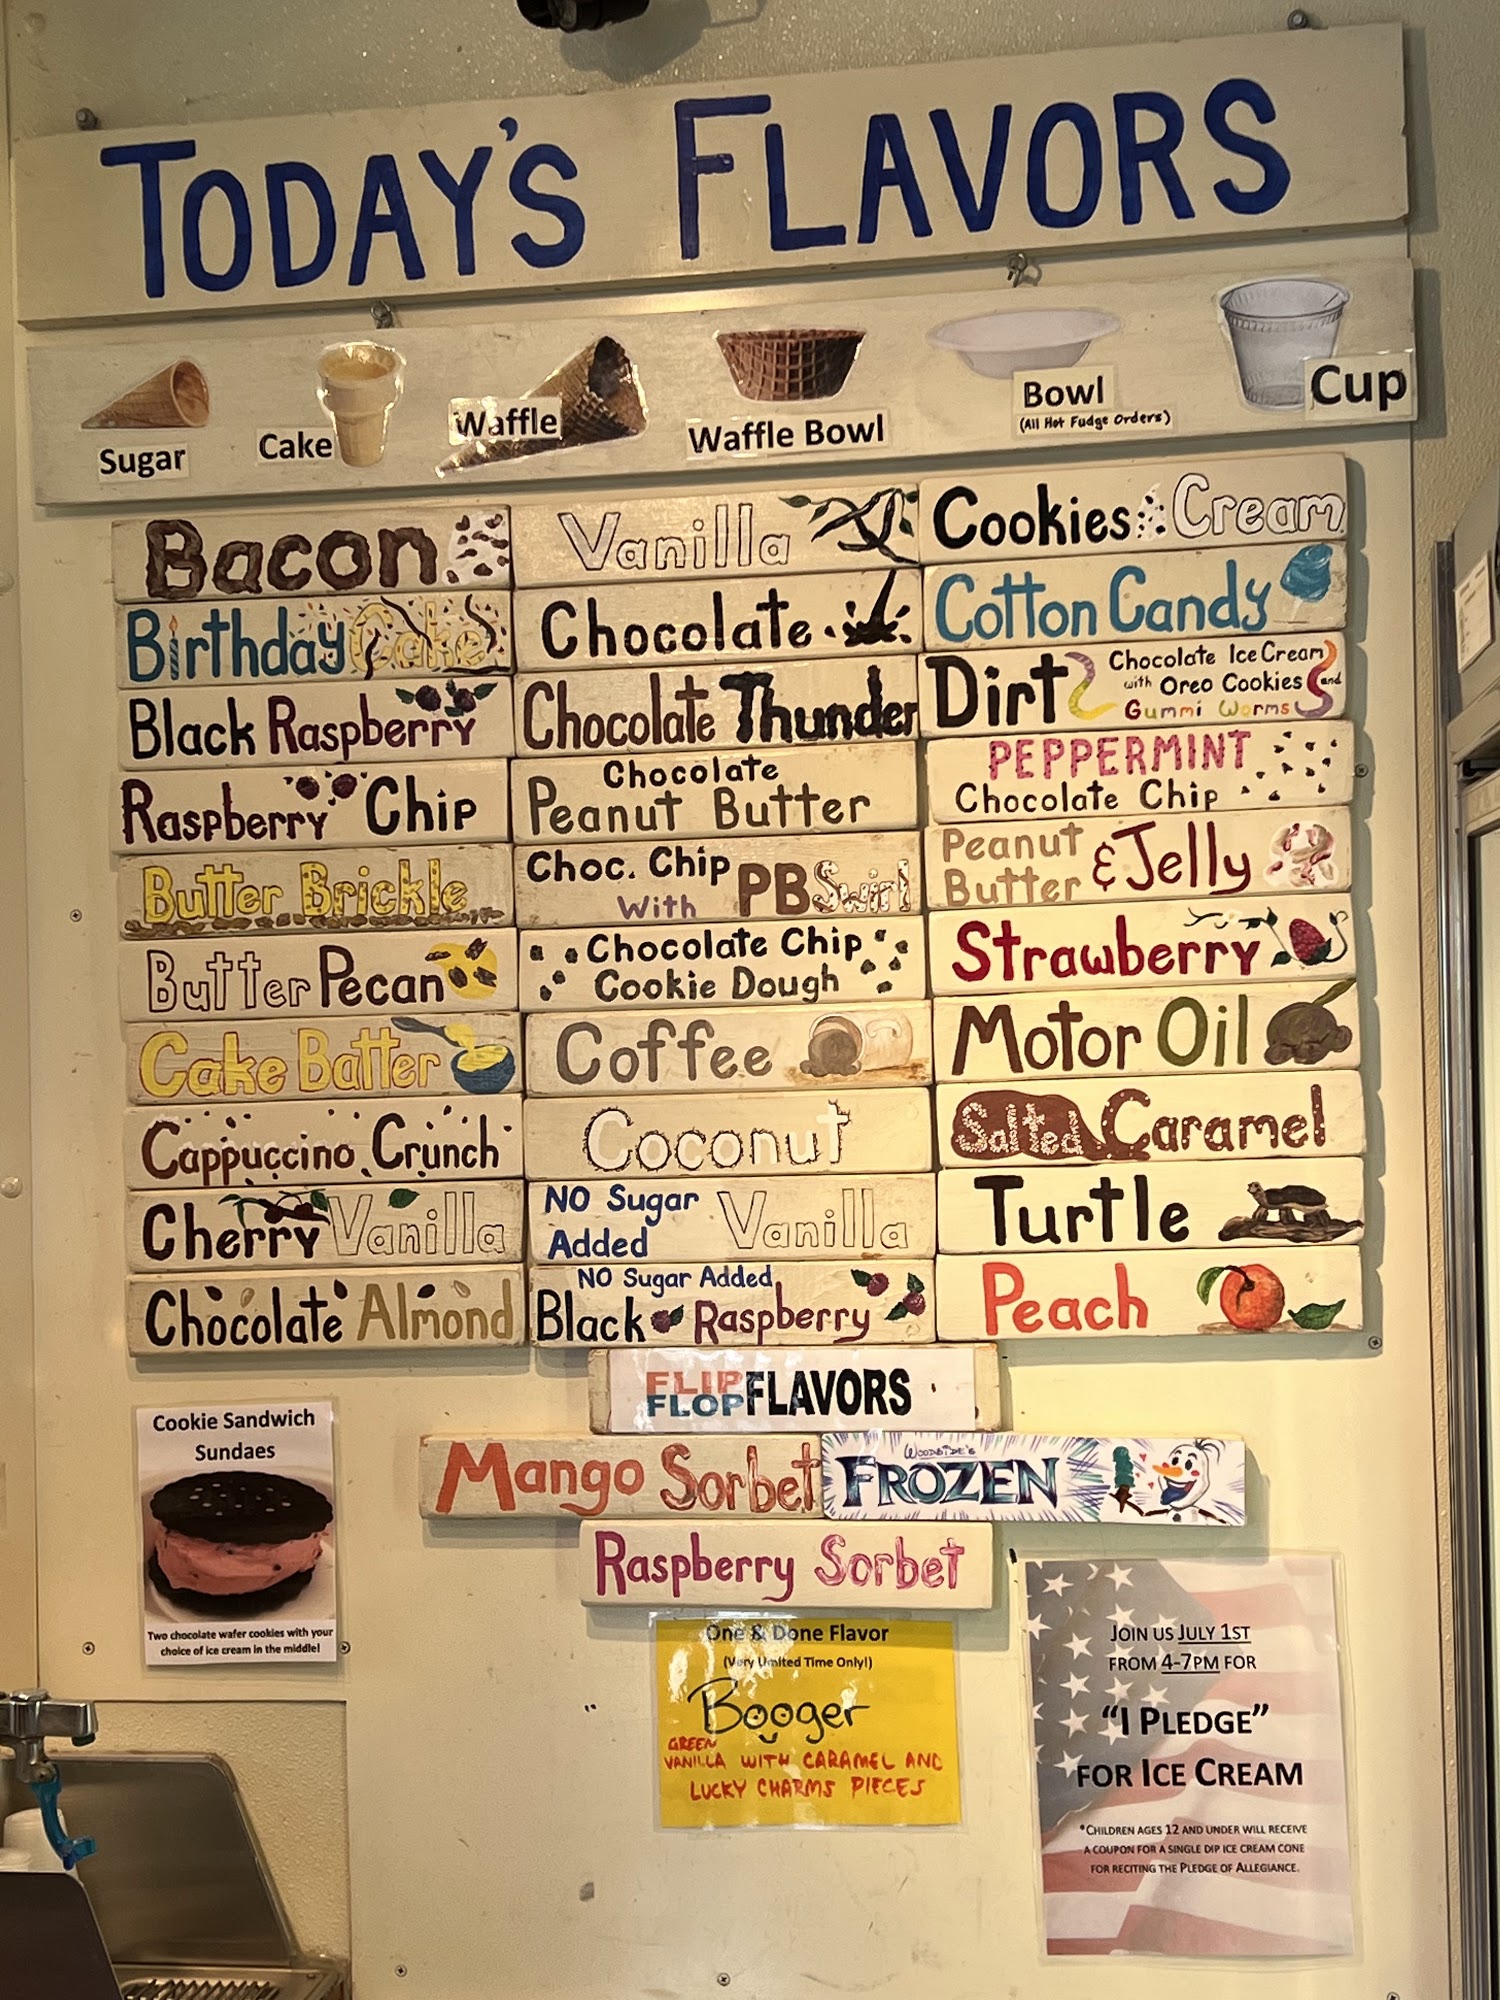 TODAY'S FLAVORS
Sugar
Cake
Waffle
Waffle Bowl
Bowl
(All Hot Fudge Orders)
Cup
Bacon
Birthday Cake
Black Raspberry
Raspberry Chip
Butter Brickle
Butter Pecan
Cake Batter
Cappuccino Crunch
Cherry Vanilla
Chocolate Almond
Vanilla
Chocolate
Chocolate Thunder
Chocolate
Peanut Butter
Choc. Chip
With PB Swirl
Chocolate Chip
Cookie Dough
Coffee
Coconut
NO Sugar
Added Vanilla
NO Sugar Added
Black Raspberry
Cookies & Cream
Cotton Candy
Dirt
Chocolate Ice Cream
with Oreo Cookies and
Gummi Worms
PEPPERMINT
Chocolate Chip
Peanut
Butter & Jelly
Strawberry
Motor Oil
Salted Caramel
Turtle
Peach
FLIP
FLOP FLAVORS
Mango Sorbet
WOODSIDE'S
FROZEN
Raspberry Sorbet
Cookie Sandwich
Sundaes
Two chocolate wafer cookies with your
choice of ice cream in the middle!
One & Done Flavor
(Very Limited Time Only!)
Booger
GREEN
VANILLA WITH CARAMEL AND
LUCKY CHARMS PIECES
JOIN US JULY 1ST
FROM 4-7PM FOR
"I PLEDGE"
FOR ICE CREAM
*CHILDREN AGES 12 AND UNDER WILL RECEIVE
A COUPON FOR A SINGLE DIP ICE CREAM CONE
FOR RECITING THE PLEDGE OF ALLEGIANCE.